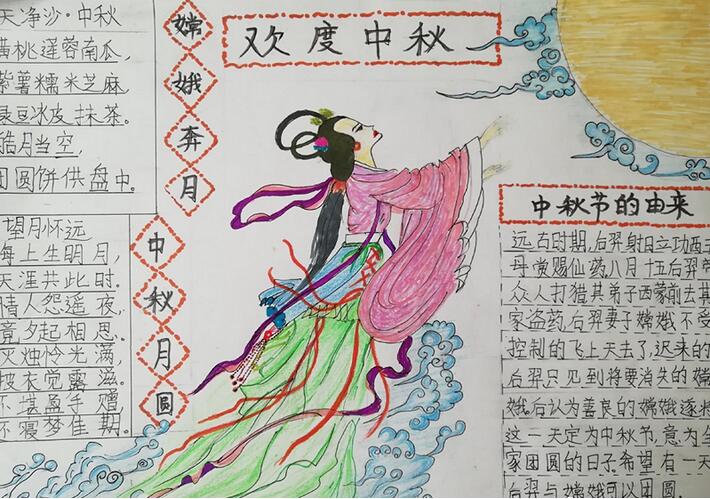 欢度中秋
嫦娥奔月
中秋月圆
天净沙·中秋
黄桃莲蓉南瓜,
紫薯糯米芝麻
绿豆冰皮抹茶。
皓月当空,
团圆饼供盘中。
望月怀远
海上生明月,
天涯共此时。
情人怨遥夜,
竟夕起相思。
灭烛怜光满,
披衣觉露滋。
不堪盈手赠
还寝梦佳期。
中秋节的由来
远古时期,后羿射日立功西王
母赏赐仙药八月十五后羿带
众人打猎其弟子西蒙前去其
家盗药后羿妻子嫦娥不受
控制的飞上天去了,迟来的
后羿只见到将要消失的嫦
娥后认为善良的嫦娥逐将
这一天定为中秋节,意为全
家团圆的日子希望有一天
后羿与嫦娥可以团圆